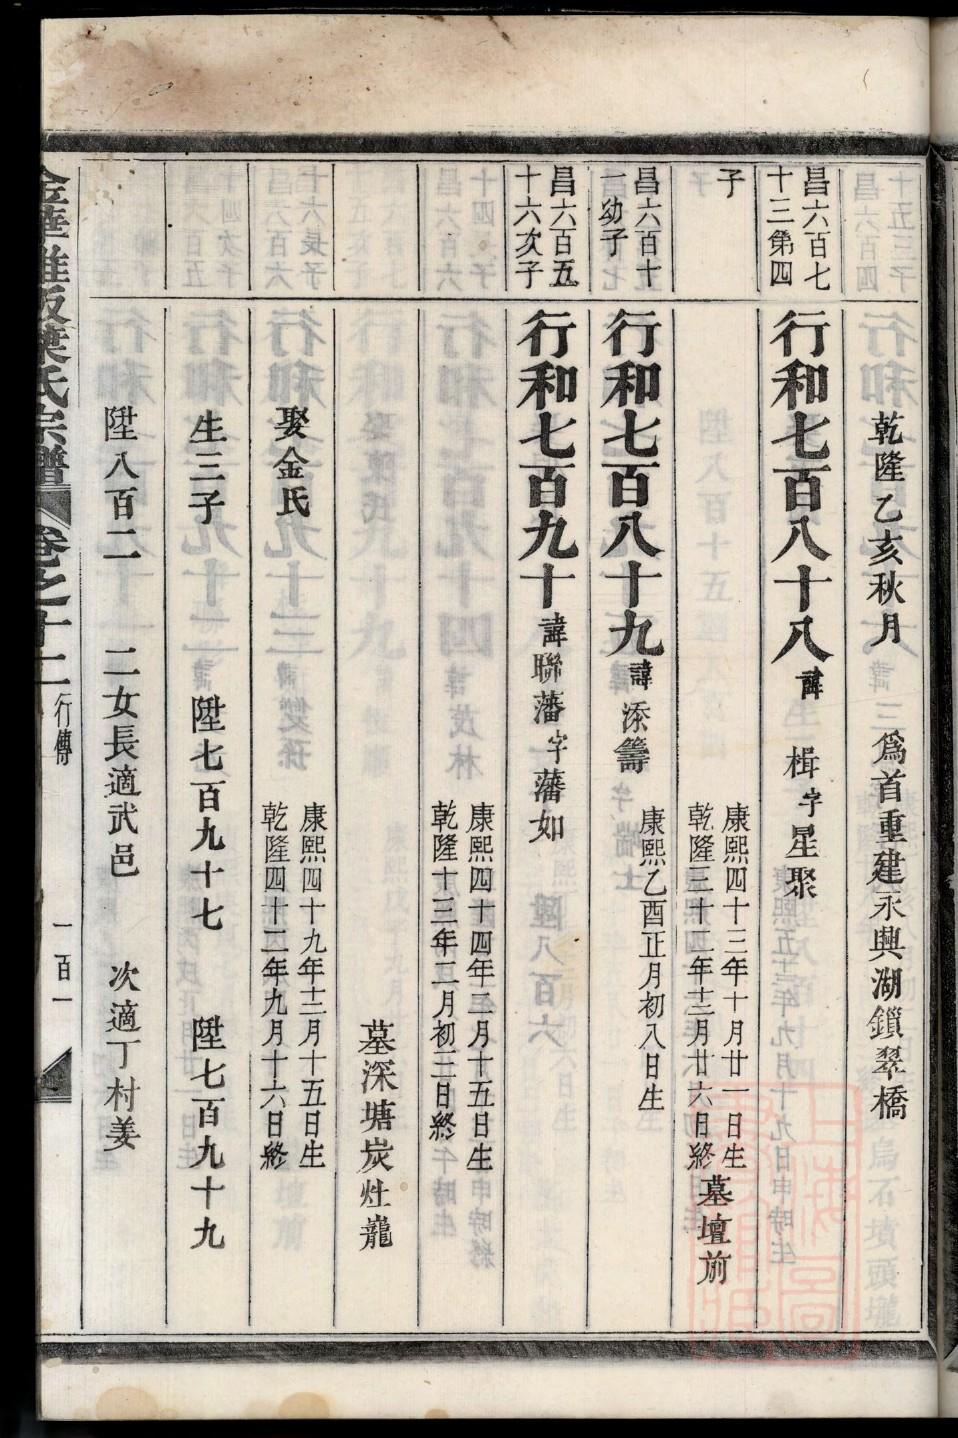 乾隆乙亥秋月　爲首重建永興湖鎖翠橋
昌六百七
十三第四
行和七百八十八 諱 楫 字 星聚
子
康熙四十三年十月廿一日生
乾隆三十二年十二月廿六日終
墓壇前
昌六百十
一幼子
行和七百八十九 諱 添籌
康熙乙酉正月初八日生
昌六百五
十六次子
行和七百九十 諱 聯藩 字 藩如
康熙四十四年三月十五日生
乾隆十三年二月初三日終
墓深塘炭灶龍
娶金氏
康熙四十九年十二月十五日生
乾隆四十二年九月十六日終
生三子　陞七百九十七　陞七百九十九
陞八百二　二女長適武邑　次適丁村姜
葉氏宗譜 卷之十二 行傳 一百一